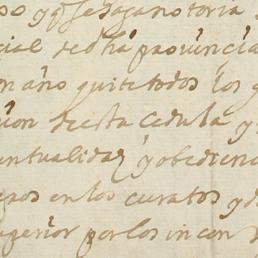 so y q̃ se haga notoria
cial de dhâ prouinçia
un año quite todos los
cion de esta cedula y
entualidad y obedienc
esos en los curatos y d
uperior por los incon